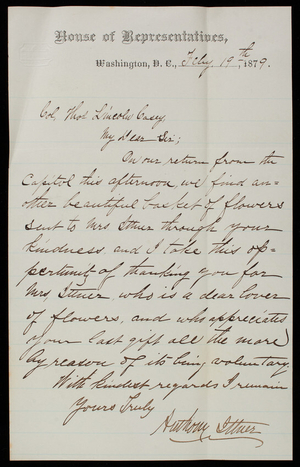 House of Representatives,
Washington, D. C., Feby. 19th, 1879.
Col. Thos Lincoln Casey
My Dear Sir;
On our return from the
Capitol this afternoon, we find an=
other beautiful basket of flowers
sent to Mrs Ittner through your
kindness, and I take this op=
pertunity of thanking you for
Mrs, Ittner, who is a dear lover
of flowers, and who appreciates
your last gift all the more
by reason of its being voluntary.
With kindest regards I remain
Yours Truly
Anthony Ittner